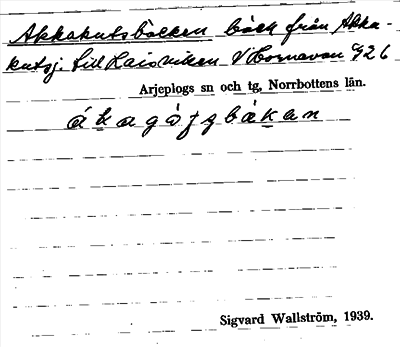 Akkakutsbäcken bäck från Akka-
kutsj. till Kaisviken V Hornavan G 26
Arjeplogs sn och tg, Norrbottens län.
Sigvard Wallström, 1939.